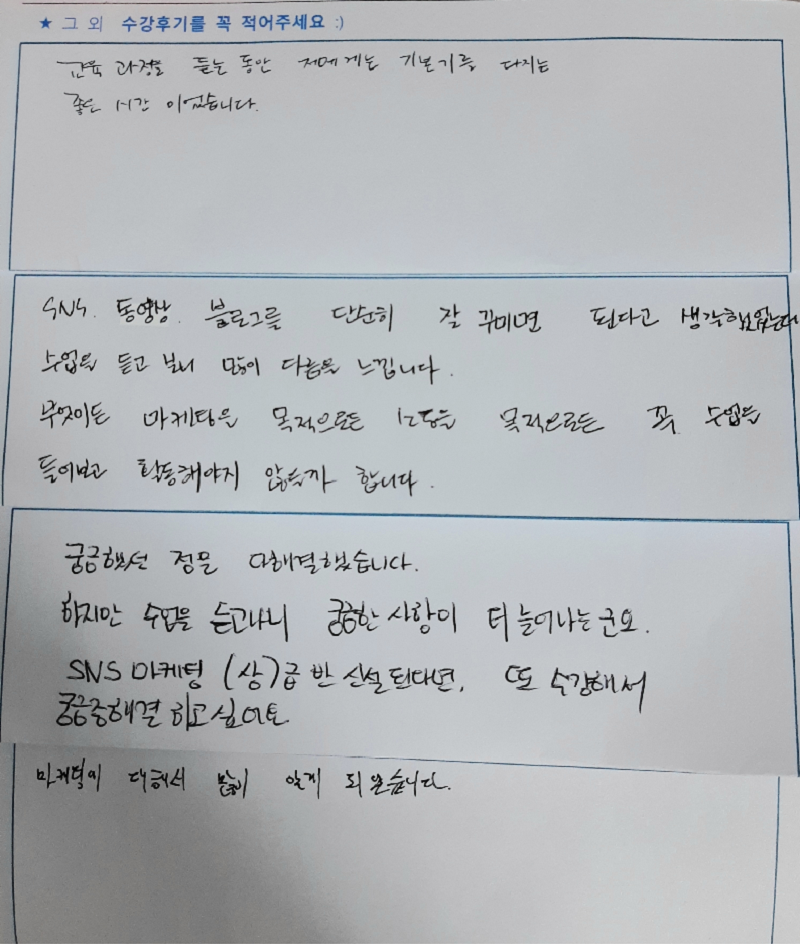 ★ 그 외 수강후기를 꼭 적어주세요 :)
교육 과정을 듣는 동안 저에게는 기본기를 다지는
좋은 시간 이었습니다.
SNS. 동영상. 블로그를 단순히 잘 꾸미면 된다고 생각했었는데
수업을 듣고 보니 많이 다름을 느낍니다.
무엇이든 마케팅을 목적으로든 소통을 목적으로든 꼭 수업을
들어보고 활동해야지 않을까 합니다.
궁금했던 질문 다해결했습니다.
하지만 수업을 듣고나니 궁금한 사항이 더 늘어나는군요.
SNS 마케팅 (상)급 반 신설된다면, 또 수강해서
궁금증해결 하고싶어요
마케팅에 대해서 많이 알게 되었습니다.